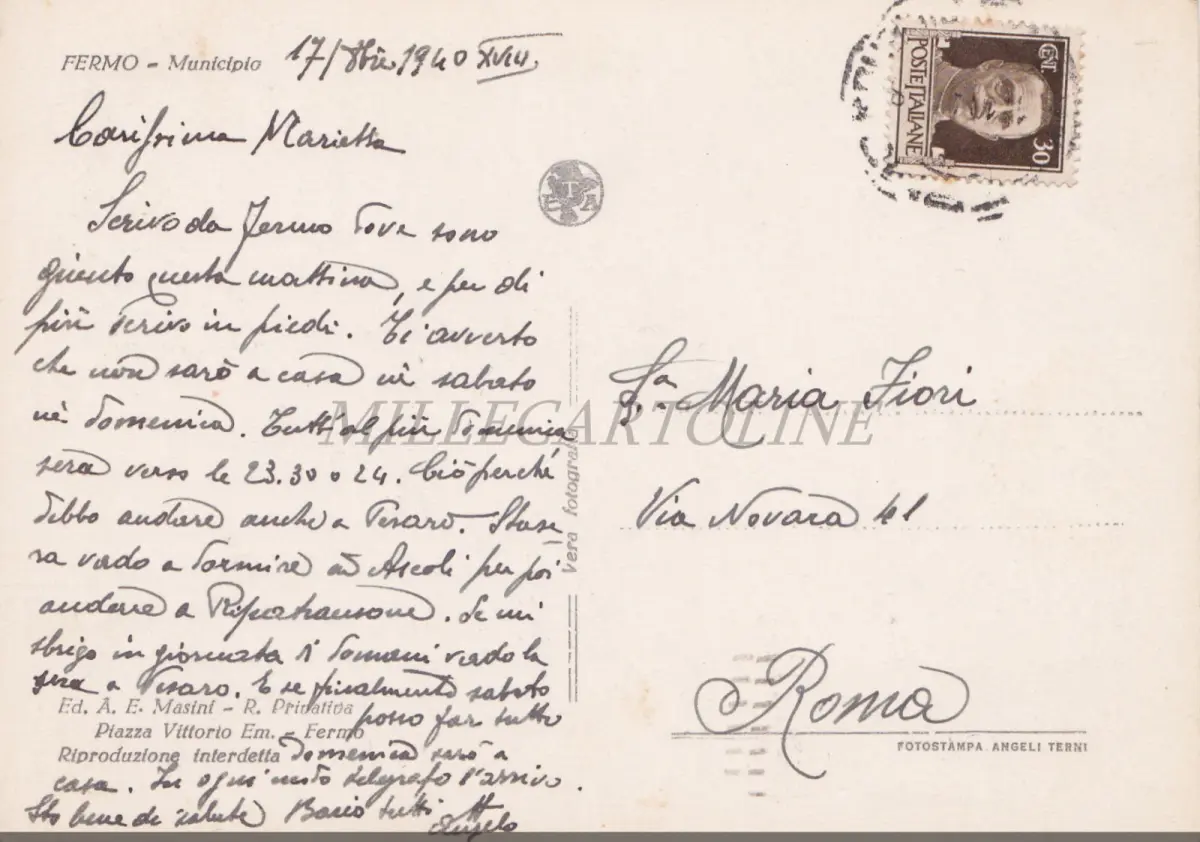 FERMO - Municipio 17/8bre 1940 XVIII
Carissima Marietta
Scrivo da Fermo dove sono
giunto questa mattina, e per di
più scrivo in piedi. Ti avverto
che non sarò a casa nè sabato
nè domenica. Tutt'al più domenica
sera verso le 23.30 o 24. Ciò perché
debbo andare anche a Pesaro. Stase
ra vado a dormire ad Ascoli per poi
andare a Ripatransone. Se mi
sbrigo in giornata di domani vado la
sera a Pesaro. E se finalmente sabato
posso far tutto
domenica sarò a
casa. In ogni modo telegrafo l'arrivo.
Sto bene di salute Bacio tutti
Angelo
Ed. A. E. Masini - R. Privativa
Piazza Vittorio Em. - Fermo
Riproduzione interdetta
Vera fotografia
POSTE ITALIANE
CENT. 30
S.ra Maria Fiori
Via Novara 41
Roma
FOTOSTAMPA ANGELI TERNI
MILLECARTOLINE